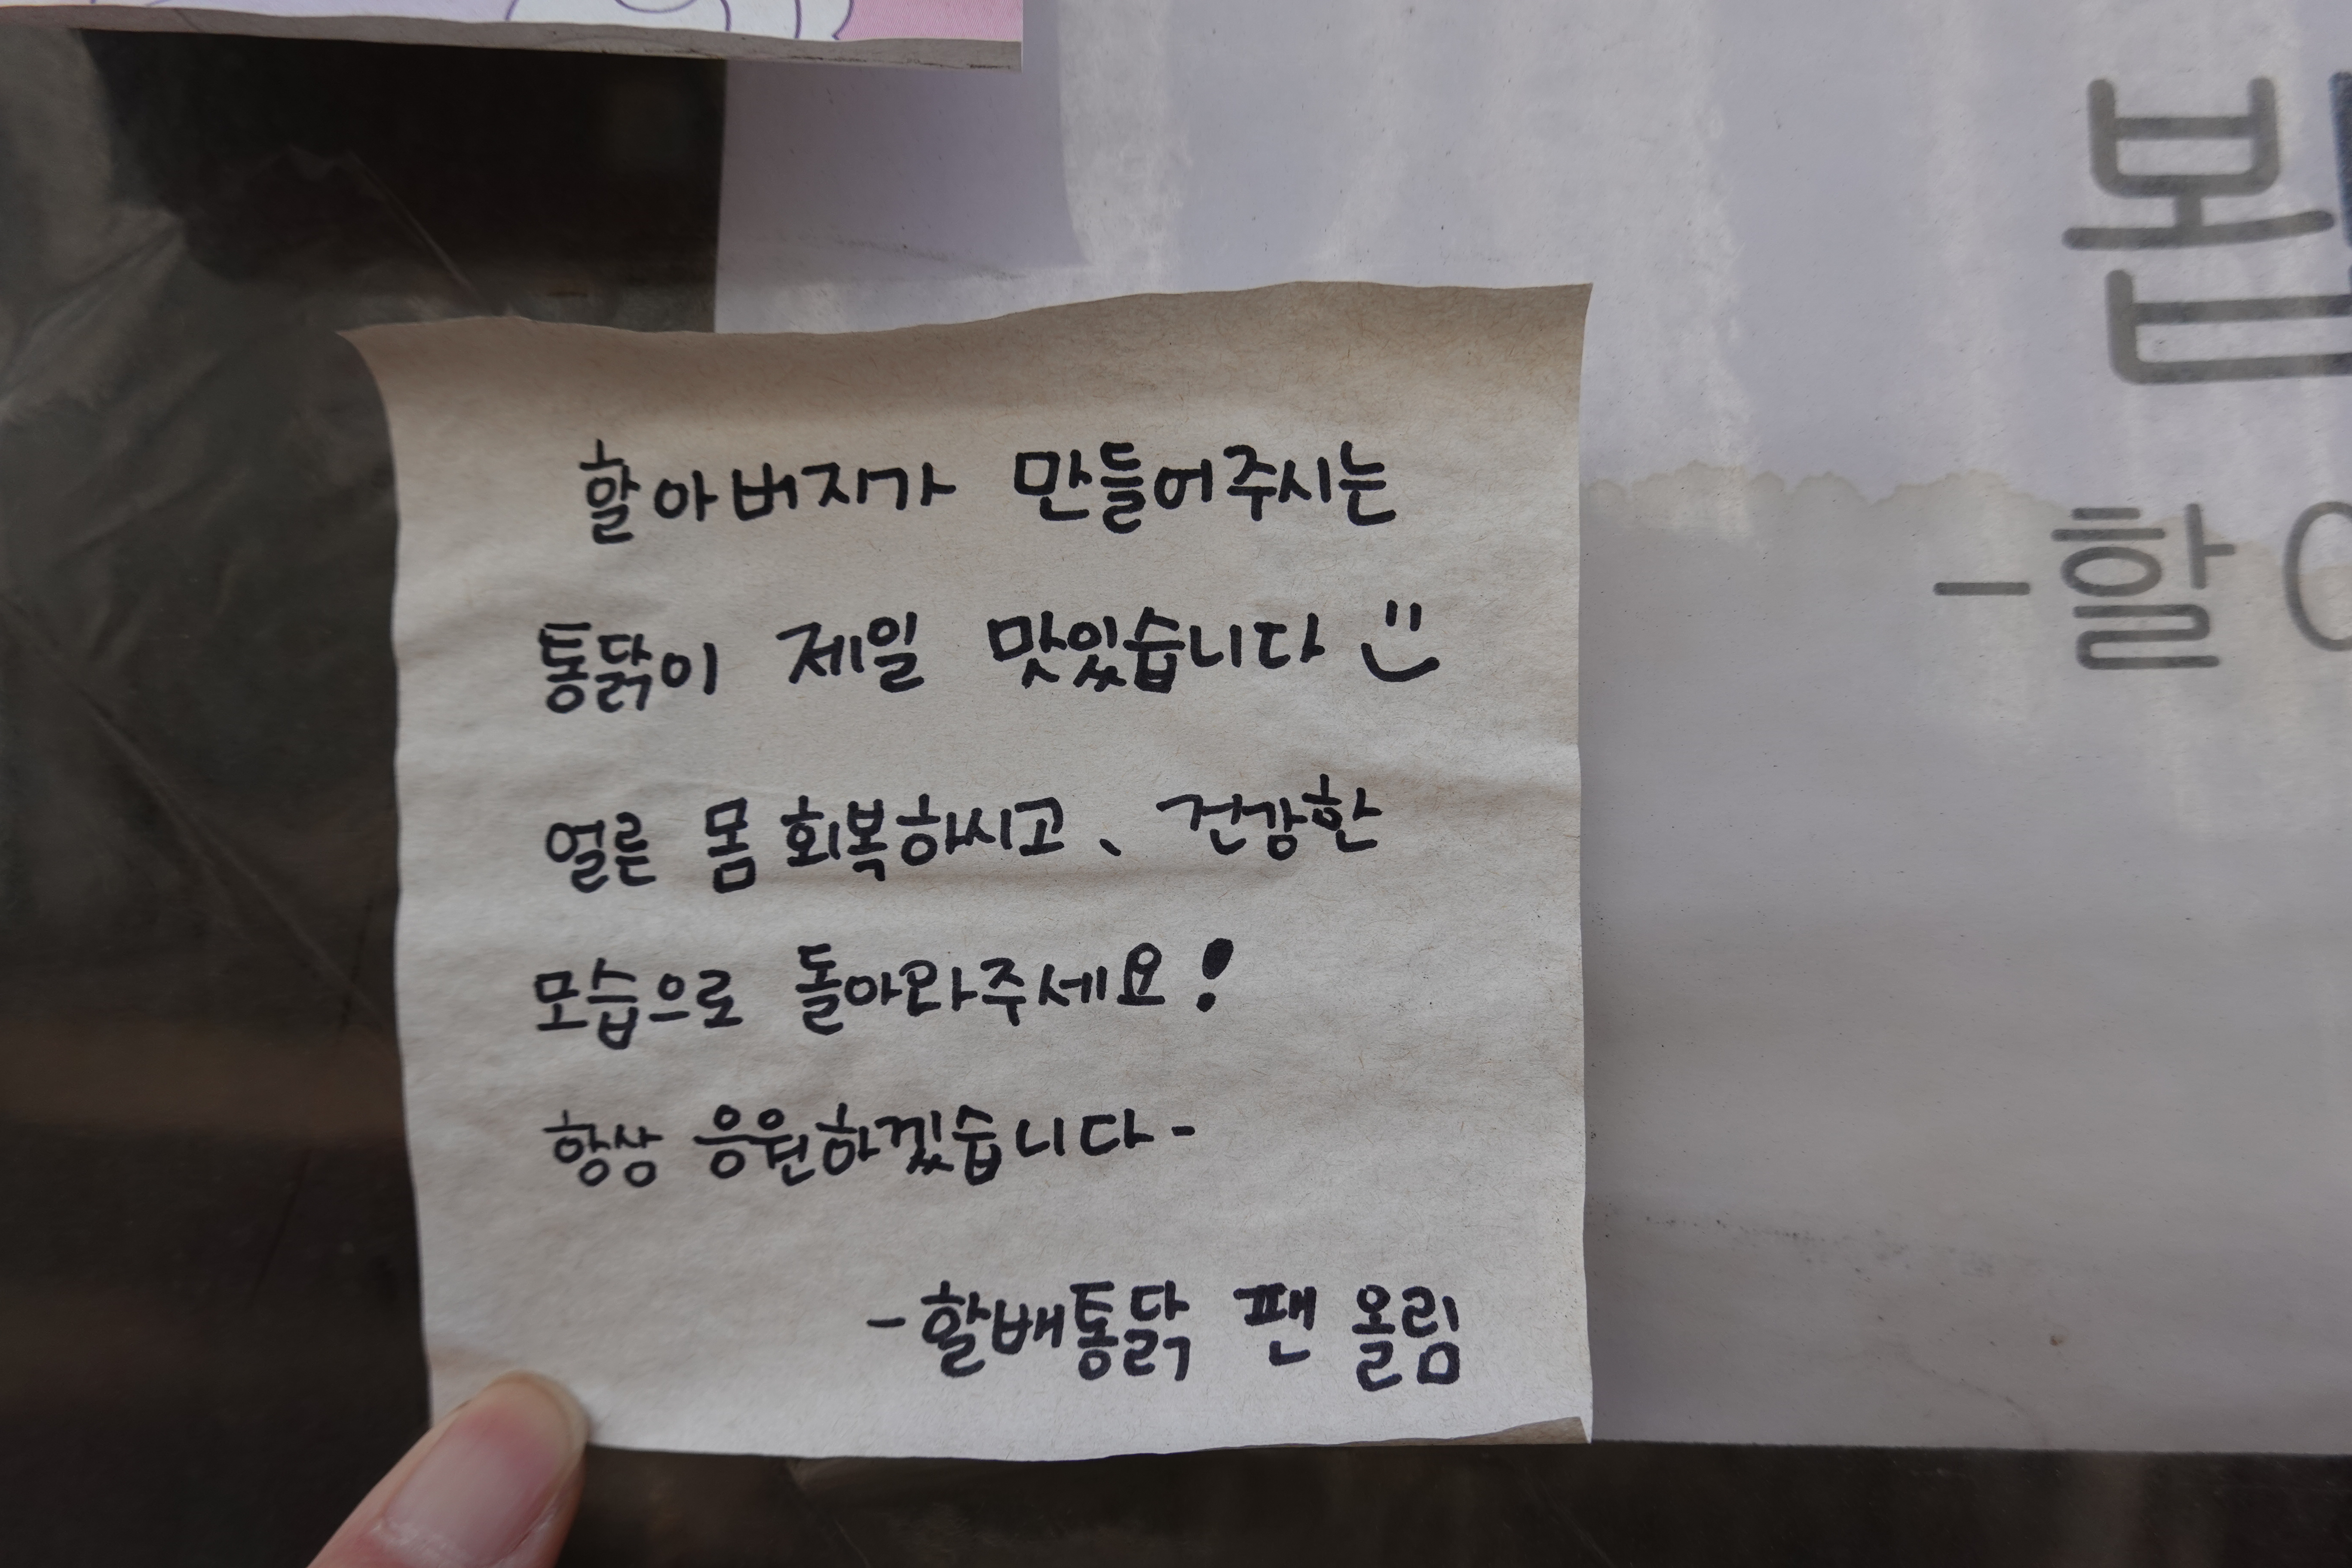 할아버지가 만들어주시는
통닭이 제일 맛있습니다
얼른 몸 회복하시고、 건강한
모습으로 돌아와주세요!
항상 응원하겠습니다-
-할배통닭 팬 올림
-할